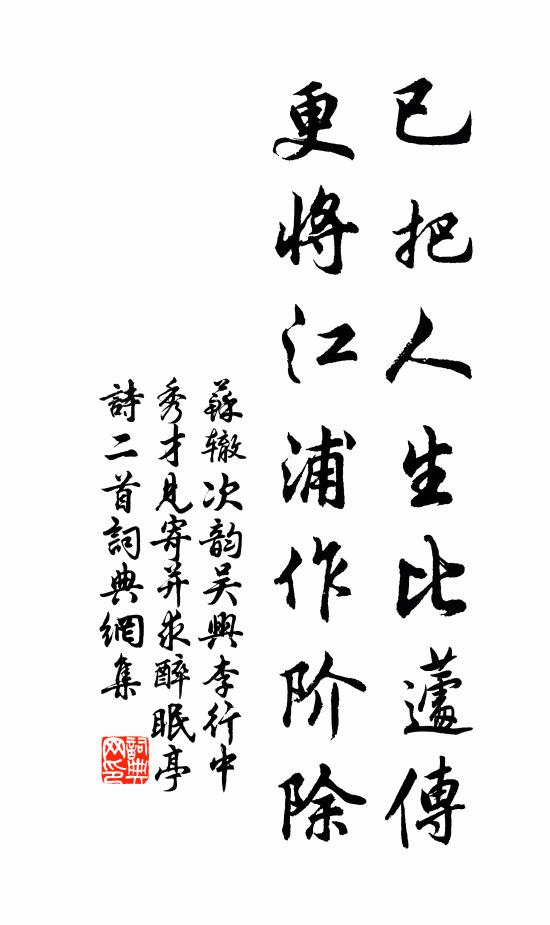 已把人生比蘧傳
更將江浦作阶除
蘇辙次韵吴興李行中
秀才見寄并求醉眠亭
詩二首詞典網集
詞典网印